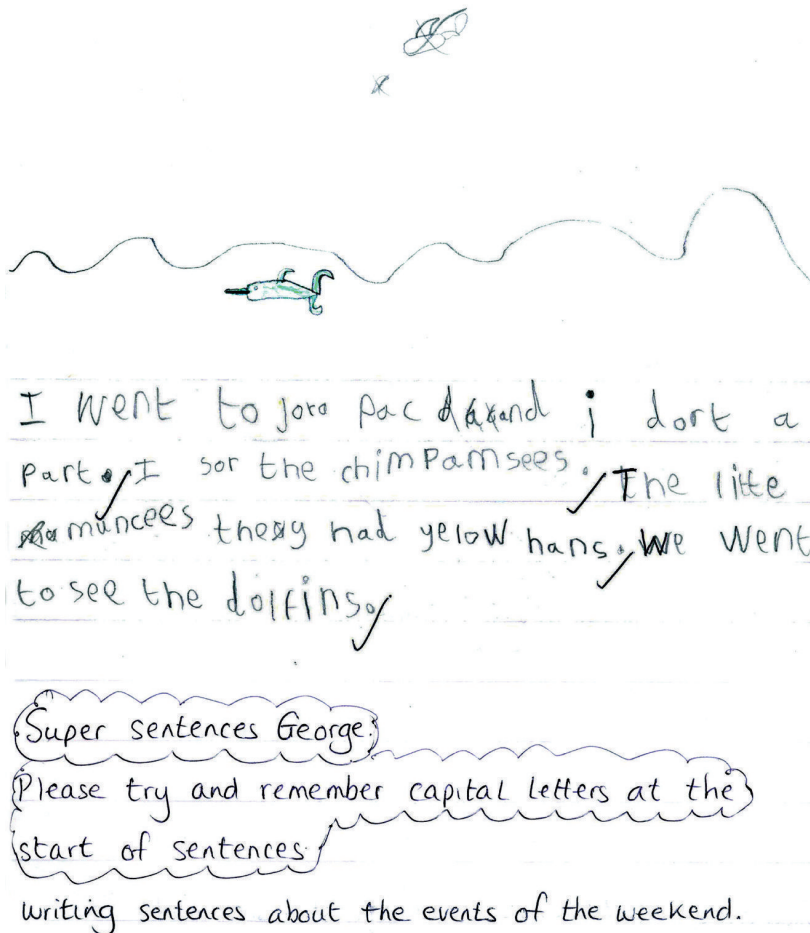 I went to joro pac and i dort a
part. I sor the chimpamsees. The litte
muncees theay had yelow hans. We went
to see the dolfins.
Super sentences George.
Please try and remember capital letters at the
start of sentences
writing sentences about the events of the weekend.